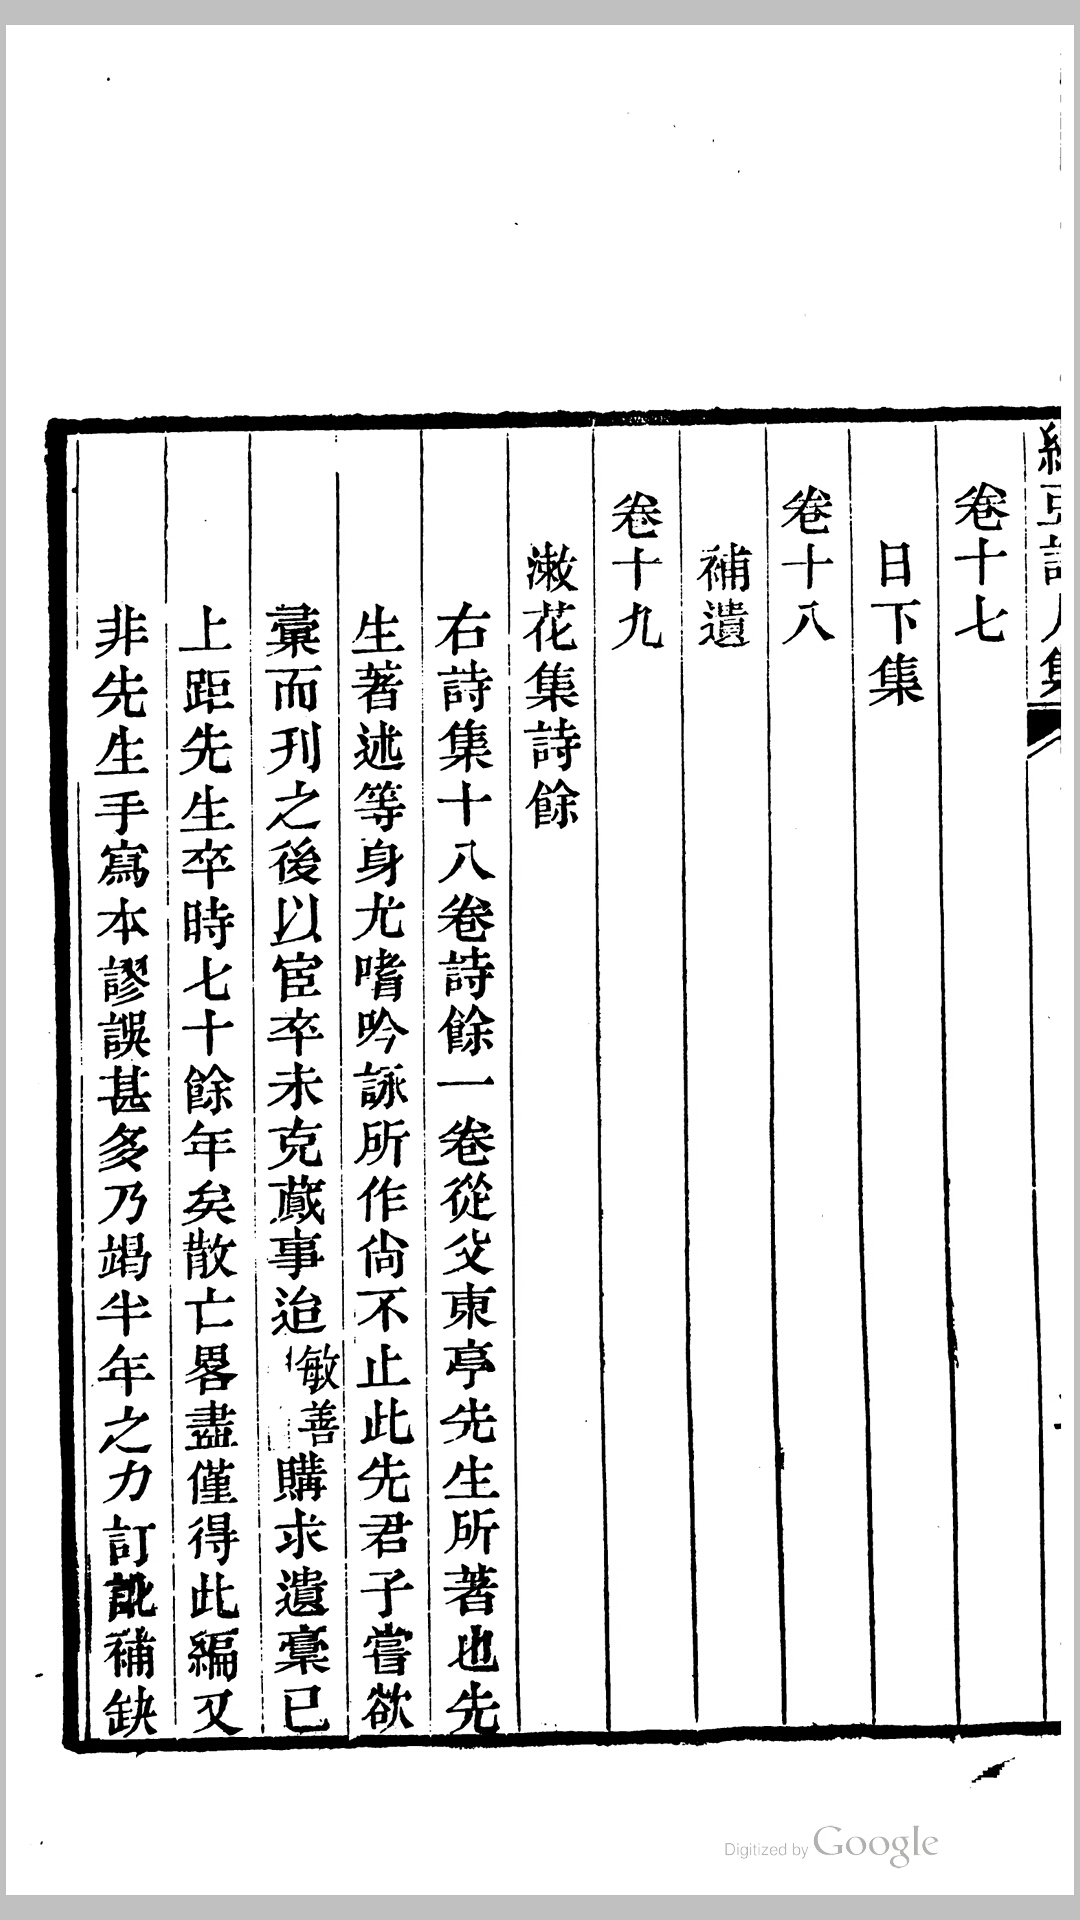 卷十七
日下集
卷十八
補遺
卷十九
漱花集詩餘
右詩集十八卷詩餘一卷從父東亭先生所著也先
生著述等身尤嗜吟詠所作尙不止此先君子嘗欲
彚而刋之後以宦卒未克蕆事迨敏善購求遺稾已
上距先生卒時七十餘年矣散亡畧盡僅得此編又
非先生手寫本謬誤甚多乃竭半年之力訂訛補缺
Digitized by Google